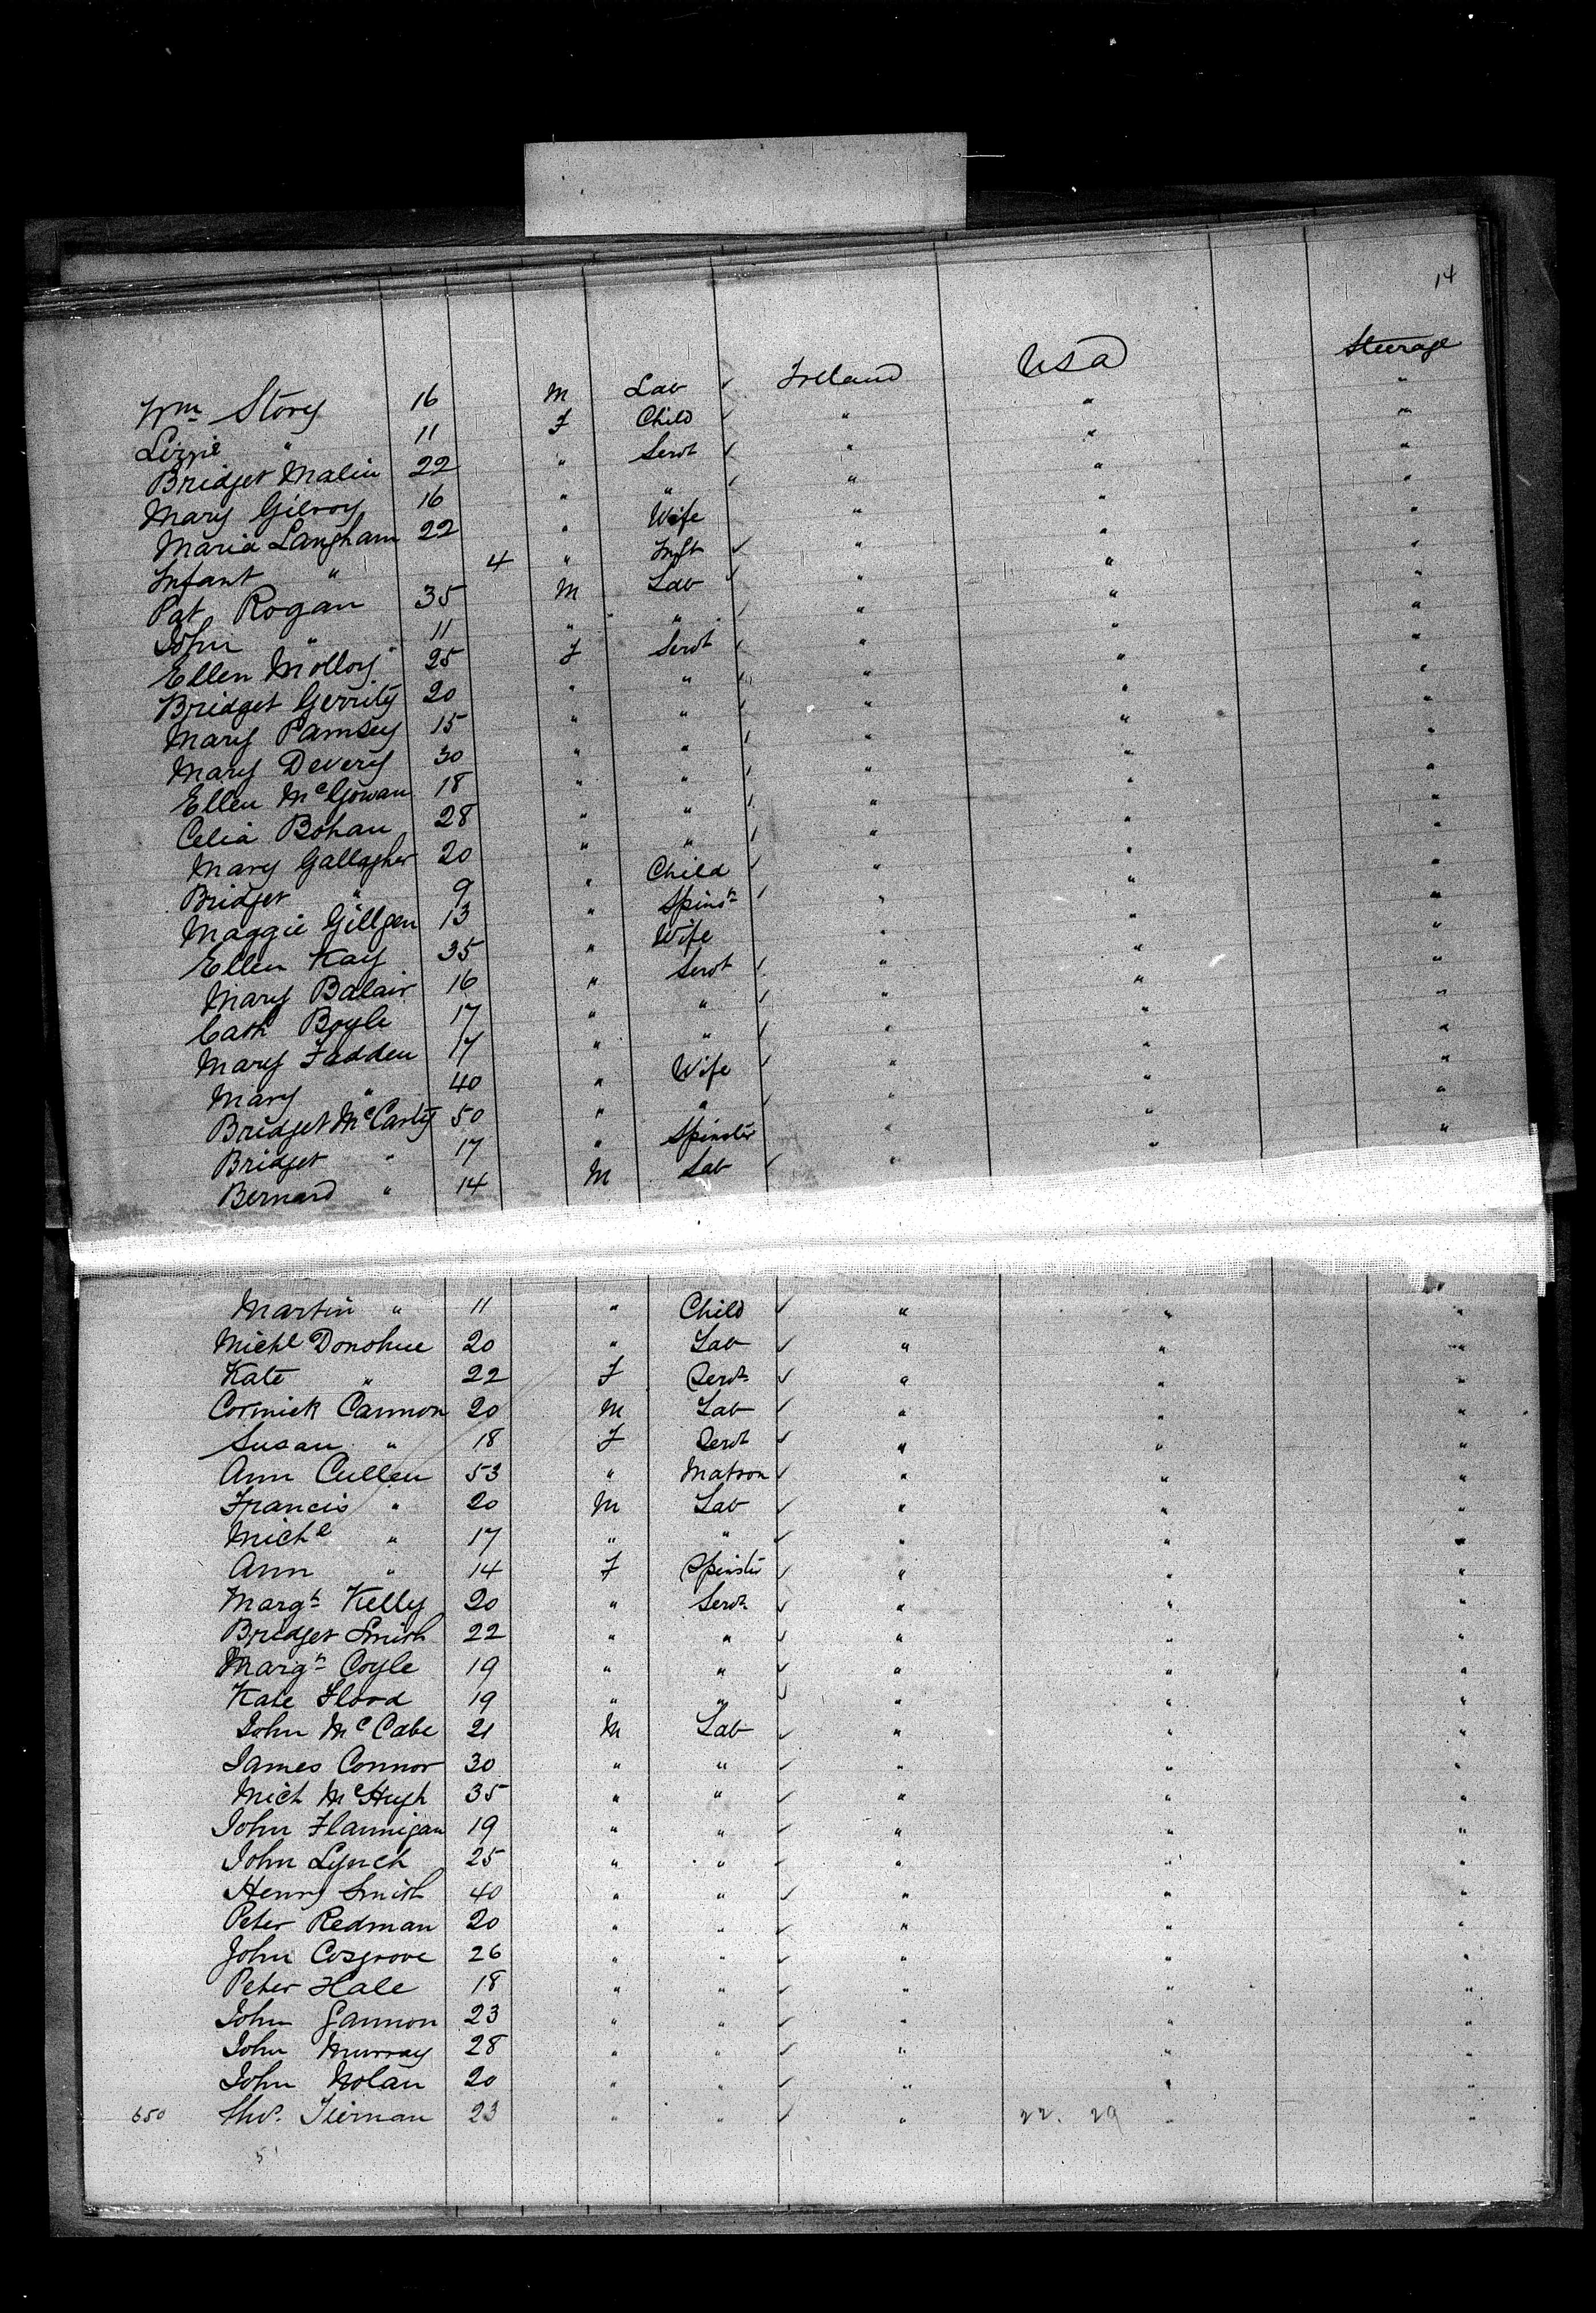 14
Wm Story 16 M Lab ✓ Ireland USA Steerage
Lizzie " 11 F Child ✓ " " "
Bridget Malin 22 " Servt ✓ " " "
Mary Gilroy 16 " " ✓ " " "
Maria Langham 22 " Wife " " "
Infant " 4 " Inft ✓ " " "
Pat Rogan 35 M Lab ✓ " " "
John " 11 " " ✓ " " "
Ellen Molloy 25 F Servt ✓ " " "
Bridget Gerrity 20 " " ✓ " " "
Mary Ramsey 15 " " ✓ " " "
Mary Devery 30 " " ✓ " " "
Ellen McGowan 18 " " ✓ " " "
Celia Bohan 28 " " ✓ " " "
Mary Gallagher 20 " " ✓ " " "
Bridget " 9 " Child ✓ " " "
Maggie Gillgen 13 " Spinsr ✓ " " "
Ellen Kay 35 " Wife " " "
Mary Balair 16 " Servt ✓ " " "
Cath Boyle 17 " " ✓ " " "
Mary Fadden 17 " " ✓ " " "
Mary " 40 " Wife ✓ " " "
Bridget McCarty 50 " " ✓ " " "
Bridget " 17 " Spinster " " "
Bernard " 14 M Lab ✓ " "
Martin " 11 " Child ✓ " " "
Michl Donohue 20 " Lab ✓ " " "
Kate " 22 F Servt ✓ " " "
Cormick Cannon 20 M Lab ✓ " " "
Susan " 18 F Servt ✓ " " "
Ann Cullen 53 " Matron ✓ " " "
Francis " 20 M Lab ✓ " " "
Michl " 17 " " ✓ " " "
Ann " 14 F Spinster ✓ " " "
Margt Kelly 20 " Servt ✓ " " "
Bridget Smith 22 " " ✓ " " "
Margt Coyle 19 " " ✓ " " "
Kate Flood 19 " " ✓ " " "
John McCabe 21 M Lab ✓ " " "
James Connor 30 " " ✓ " " "
Mich McHugh 35 " " ✓ " " "
John Flannigan 19 " " ✓ " " "
John Lynch 25 " " ✓ " " "
Henry Smith 40 " " ✓ " " "
Peter Redman 20 " " ✓ " " "
John Cosgrove 26 " " ✓ " " "
Peter Hale 18 " " ✓ " " "
John Gannon 23 " " ✓ " " "
John Murray 28 " " ✓ " " "
John Nolan 20 " " ✓ " " "
650 Thos. Tiernan 23 " " ✓ " 22. 29 " "